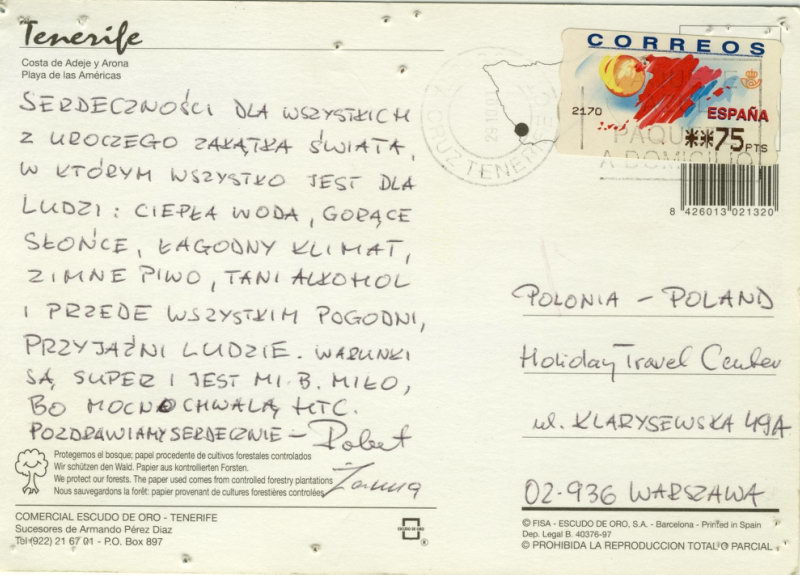 Tenerife
Costa de Adeje y Arona
Playa de las Américas
SERDECZNOŚCI DLA WSZYSTKICH
Z UROCZEGO ZAKĄTKA ŚWIATA,
W KTÓRYM WSZYSTKO JEST DLA
LUDZI: CIEPŁA WODA, GORĄCE
SŁOŃCE, ŁAGODNY KLIMAT,
ZIMNE PIWO, TANI ALKOHOL
I PRZEDE WSZYSTKIM POGODNI,
PRZYJAŹNI LUDZIE. WARUNKI
SĄ SUPER I JEST MI B. MIŁO,
BO MOCNO CHWALĄ HTC.
POZDRAWIAMY SERDECZNIE - Robert
Żanna
Protegemos el bosque; papel procedente de cultivos forestales controlados
Wir schützen den Wald. Papier aus kontrollierten Forsten.
We protect our forests. The paper used comes from controlled forestry plantations
Nous sauvegardons la forêt: papier provenant de cultures forestières controlées
COMERCIAL ESCUDO DE ORO - TENERIFE
Sucesores de Armando Pérez Diaz
Tel (922) 21 67 01 - P.O. Box 897
ESCUDO DE ORO
®
CORREOS
2170
ESPAÑA
**75 PTS
PAQU
A DOMICILIO
CRUZ TENERIFE
8 426013 021320
POLONIA - POLAND
Holiday Travel Center
ul. KLARYSEWSKA 49A
02-936 WARSZAWA
© FISA - ESCUDO DE ORO, S.A. - Barcelona - Printed in Spain
Dep. Legal B. 40376-97
© PROHIBIDA LA REPRODUCCION TOTAL O PARCIAL